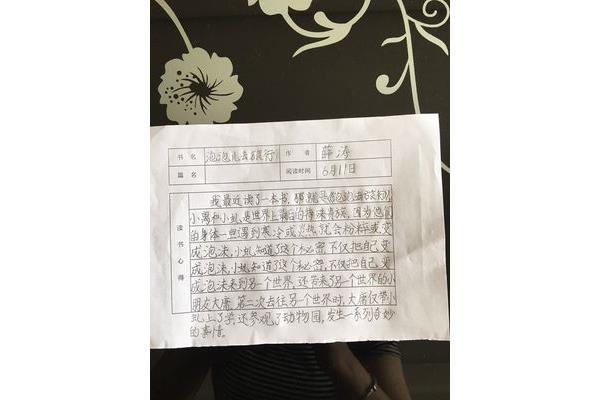 书 名 泡泡儿去旅行 作 者 薛涛
篇 名 阅读时间 6月11日
读书心得
我最近读了一本书,
小禺和小虬,是世界上 因为他们
的身体一旦遇到寒冷或炎热就会粉碎或变
成泡沫,小虬知道了这个秘密,不仅把自己变
成泡沫,小虬知道了这个秘密,不仅把自己变
成泡沫来到另一个世界,还带来了另一个世界的小
朋友大库。第二次去往另一个世界时,大库仅带小
虬上了学,还参观了动物园,发生一系列奇妙
的事情。